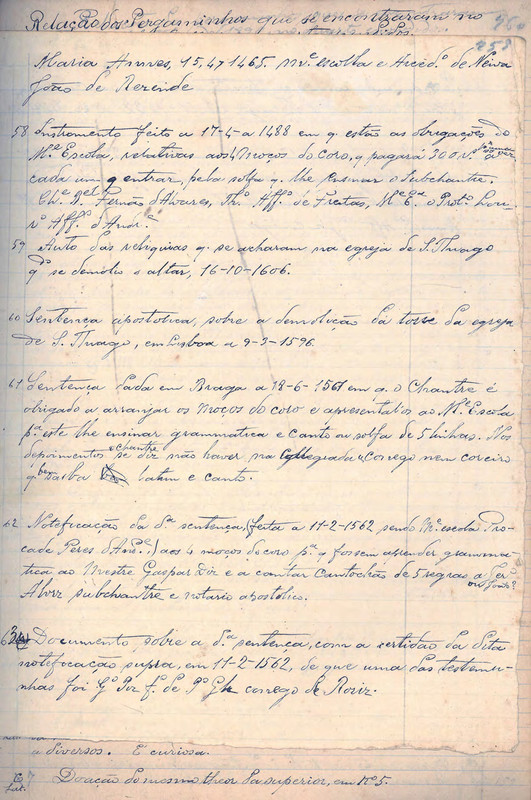 Relação dos Pergaminhos que se encontraram no
258
Maria Annes, 15,4,1465. Mᵉ escolla e Arced.º de Neiva
João de Rezende
58 Instrumento feito a 17-4-a 1488 em q. estão as obrigações do
Mᵉ Escola, relativas aos 4 moços do coro, q pagará 300 rs.
cada um q entrar, pela solfa q. lhe ensinar o Subchantre.
Fernão d'Alvares, Affº de Freitas,
Affº d'Andrᵉ
59 Auto das reliquias q. se acharam na egreja de S. Thiago
qº se demoliu o altar, 16-10-1606.
60 Sentença apostolica, sobre a demolução da torre da egreja
de S. Thiago, em Lisboa a 9-3-1596.
61 Sentença dada em Braga a 18-6-1561 em q. o Chantre é
obrigado a arranjar os moços do coro e apresental-os ao Mᵉ Escola
pª este lhe ensinar grammatica e canto ou solfa de 5 linhas. Nos
depoimentos o chantre se diz não haver na Collegiada Conego nem coreiro
q. bem saiba latim e canto.
62 Notefficação da dª sentença, (feita a 11-2-1562 sendo Mᵉ escola
Peres d'Andrᵉ) aos 4 moços do coro pª q fossem aprender gramma-
tica ao Mestre Gaspar Diz e a cantar Cantochão de 5 regras a
Alvrz subchantre e notario apostolico.
63 Documento, sobre a dª sentença, com a certidão da dita
notefocação supra, em 11-2-1562, de que uma das testemu-
nhas foi Gº Piz fº de Pº Glz conego de Roriz.
a diversos. É curiosa.
Doação do mesmo theor da superior, em nº 5.